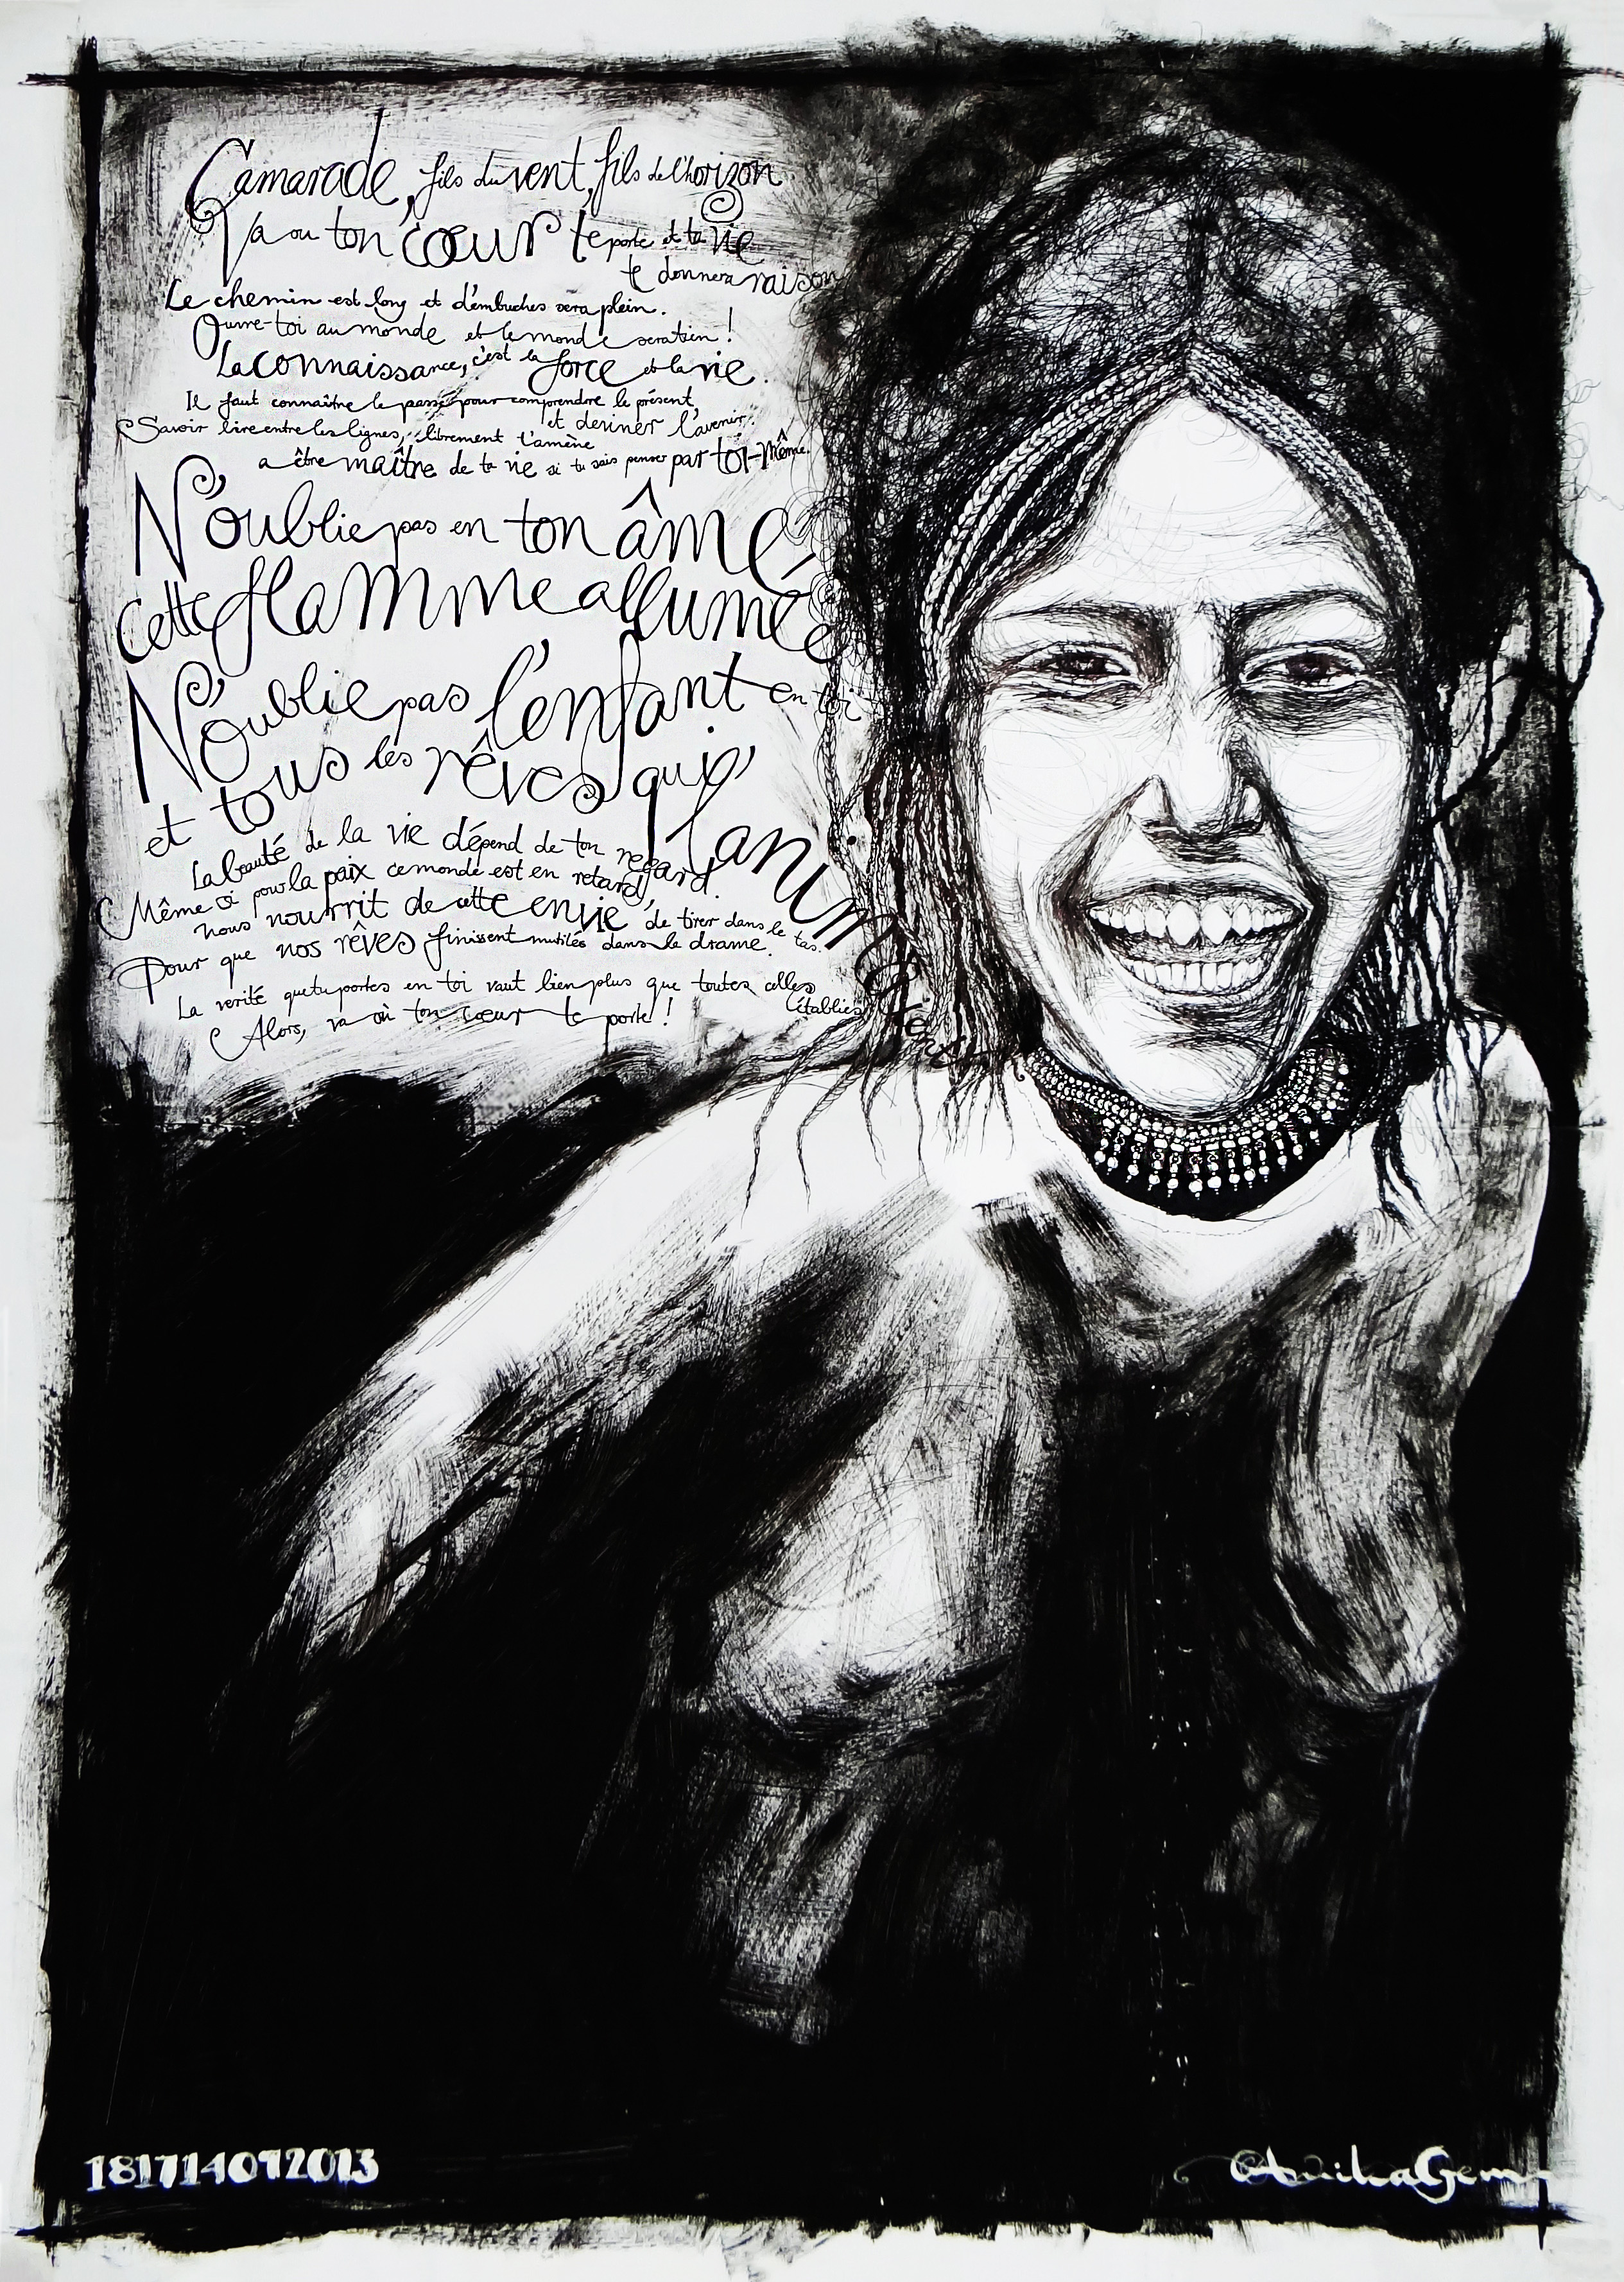 Camarade, fils du vent, fils de l'horizon
Va ou ton cœur te porte et ta vie
te donnera raison
Le chemin est long et d'embuches sera plein.
Ouvre-toi au monde et le monde sera tien !
La connaissance, c'est la force et la vie.
Il faut connaître le passé pour comprendre le présent,
et deviner l'avenir.
Savoir lire entre les lignes, librement t'amène
a être maître de ta vie si tu sais penser par toi-même.
N'oublie pas en ton âme
cette flamme allumée
N'oublie pas l'enfant en toi
et tous les rêves qui
l'animèrent
La beauté de la vie dépend de ton regard.
Même si pour la paix ce monde est en retard,
nous nourrit de cette envie, de tirer dans le tas.
Pour que nos rêves finissent mutilés dans le drame.
La verité que tu portes en toi vaut bien plus que toutes celles
établies
Alors, va où ton cœur te porte !
181714092013